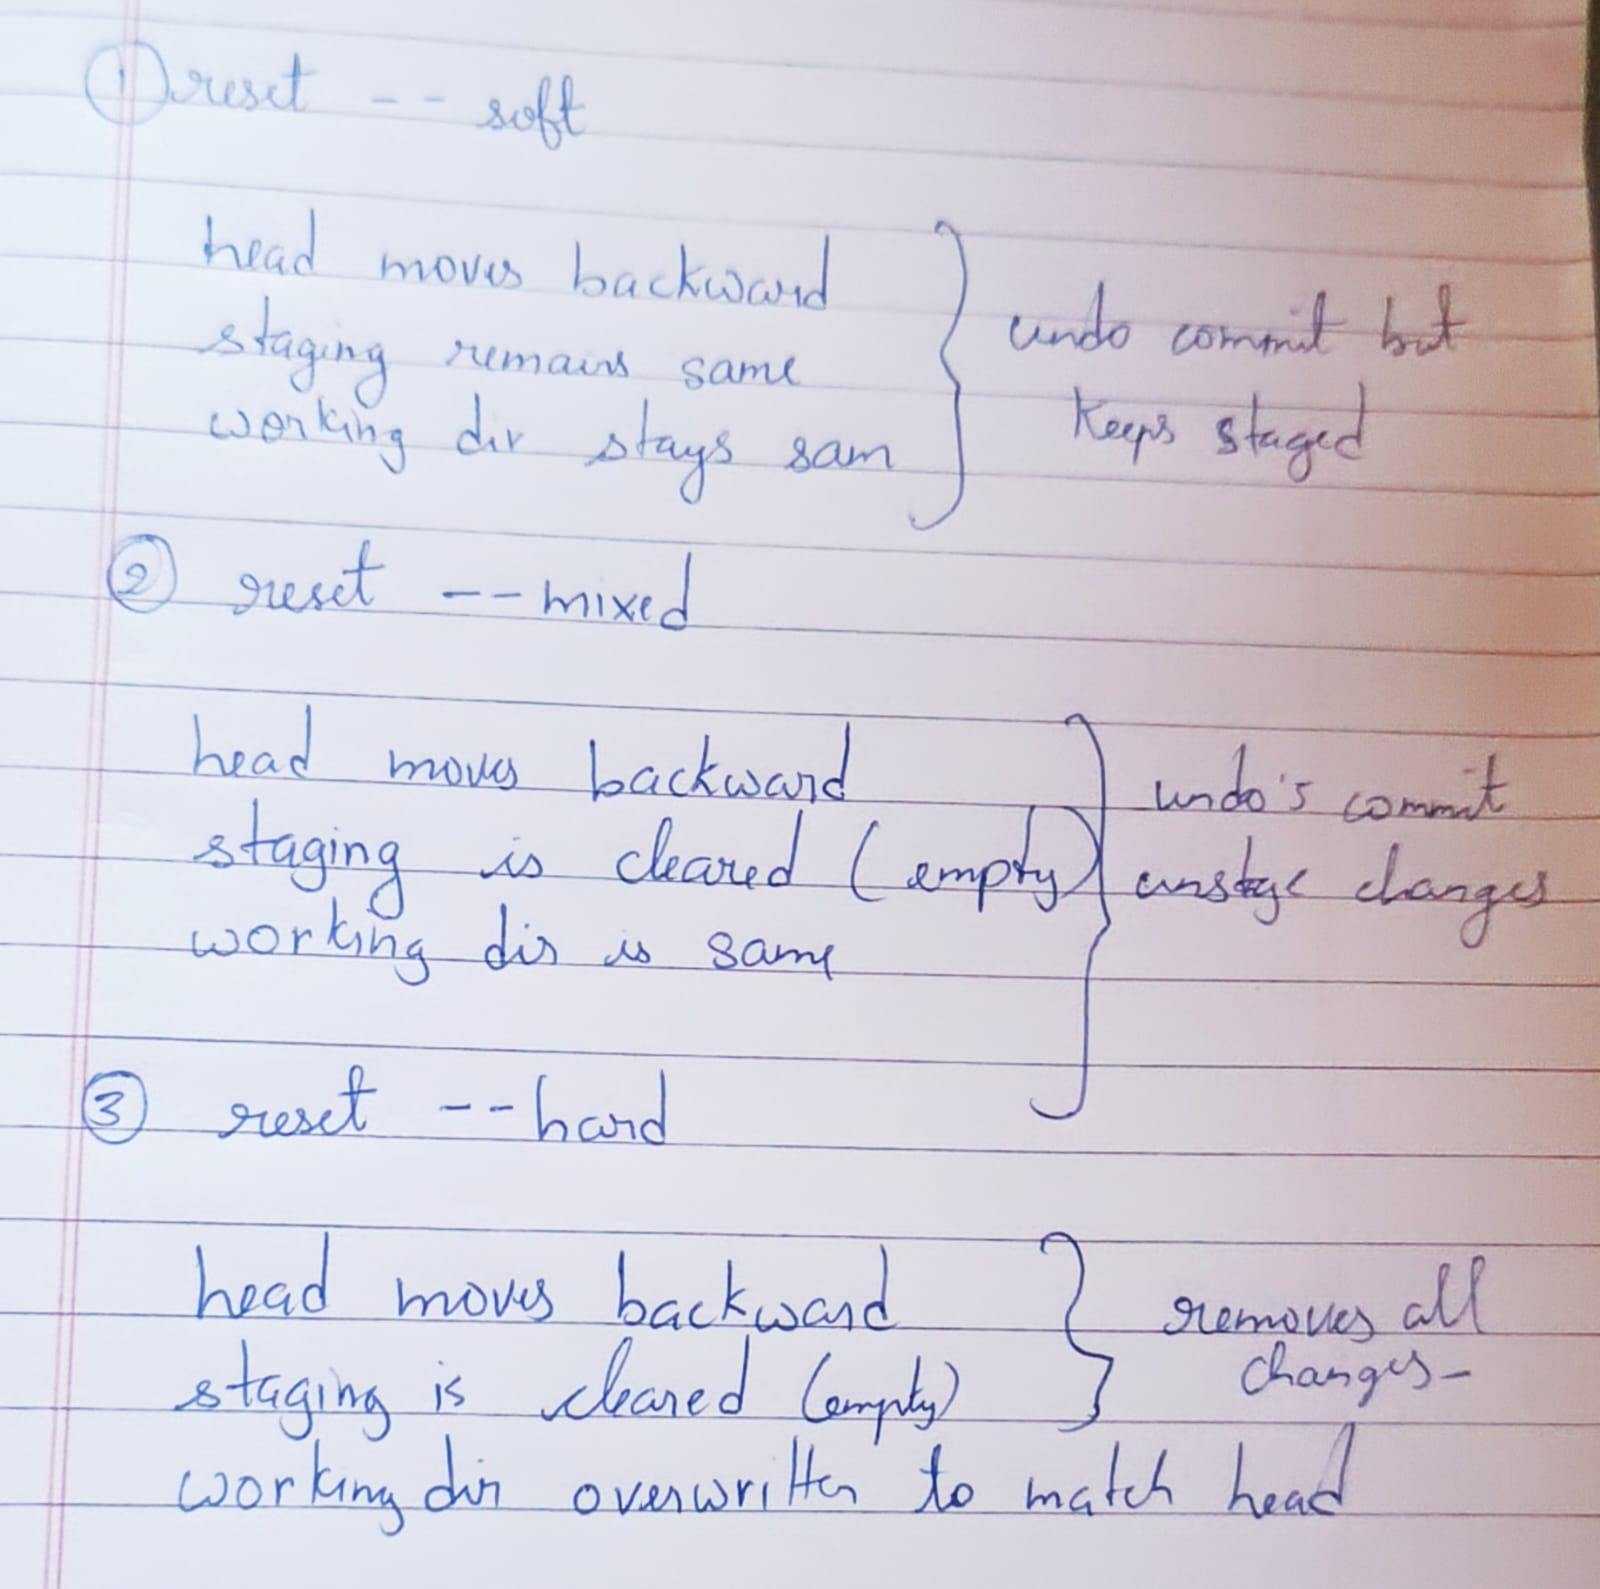 ① reset -- soft
head moves backward
staging remains same
working dir stays sam
undo commit but
keeps staged
② reset --mixed
head moves backward
staging is cleared (empty)
working dir is same
undo's commit
unstage changes
③ reset --hard
head moves backward
staging is cleared (empty)
working dir overwritten to match head
removes all
changes-